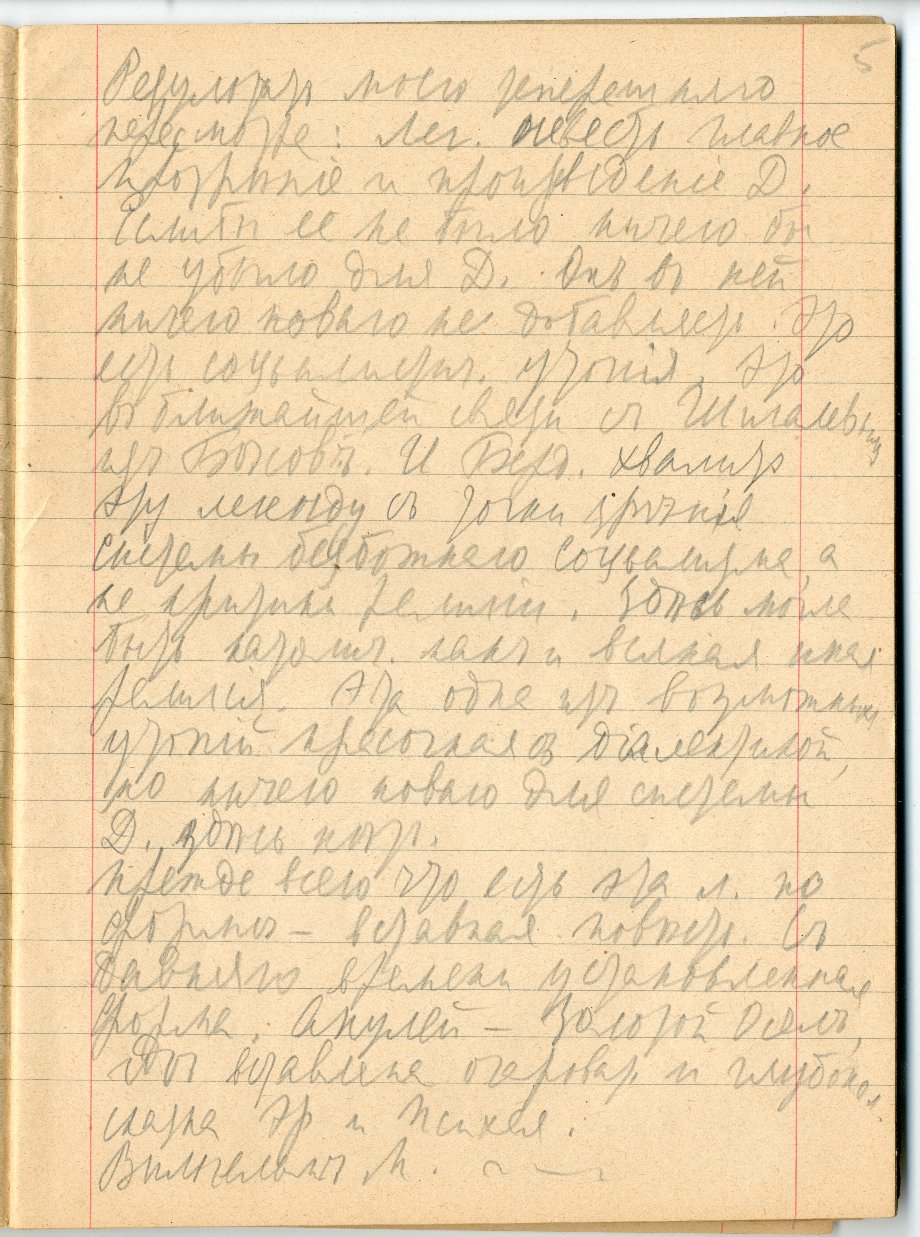 5
Результатъ моего теперешняго
пересмотра: Лег. не есть главное
и произведеніе Д.
Если бы ее не было ничего бы
не убыло для Д. Онъ въ ней
ничего новаго не добавляетъ. Это
есть соцьалистич. утопія. Это
въ ближайшей связи съ Шигалевымъ
изъ Бѣсовъ. И Берд. хвалитъ
эту легенду съ точки зрѣнія
системы безбожнаго соцьализма, а
не критики религіи. Здѣсь може
быть католич. какъ и всякая иная
религія. Эта одна изъ возможныхъ
утопій діалектикой,
но ничего новаго для системы
Д. здѣсь нѣтъ.
Прежде всего что есть эта л. по
формѣ – вставная повѣсть. Съ
давняго времени установленная
форма. Апулей – Золотой Оселъ,
вставлена очароват и глубокая
сказка Эр и Психея.
Вильгельмъ М.